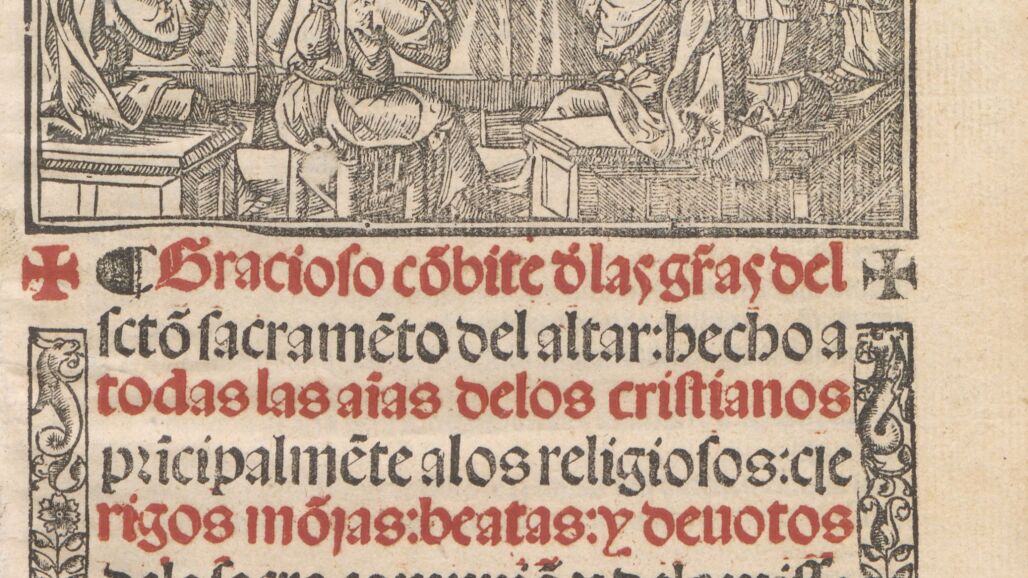 ¶ Gracioso cõbite d̃las gr̃as del
sctõ sacramẽto del altar: hecho a
todas las aĩas delos cristianos
prĩcipalmẽte alos religiosos: cle
rigos mõjas: beatas: y deuotos
dela sacra comuniõ y dela miss